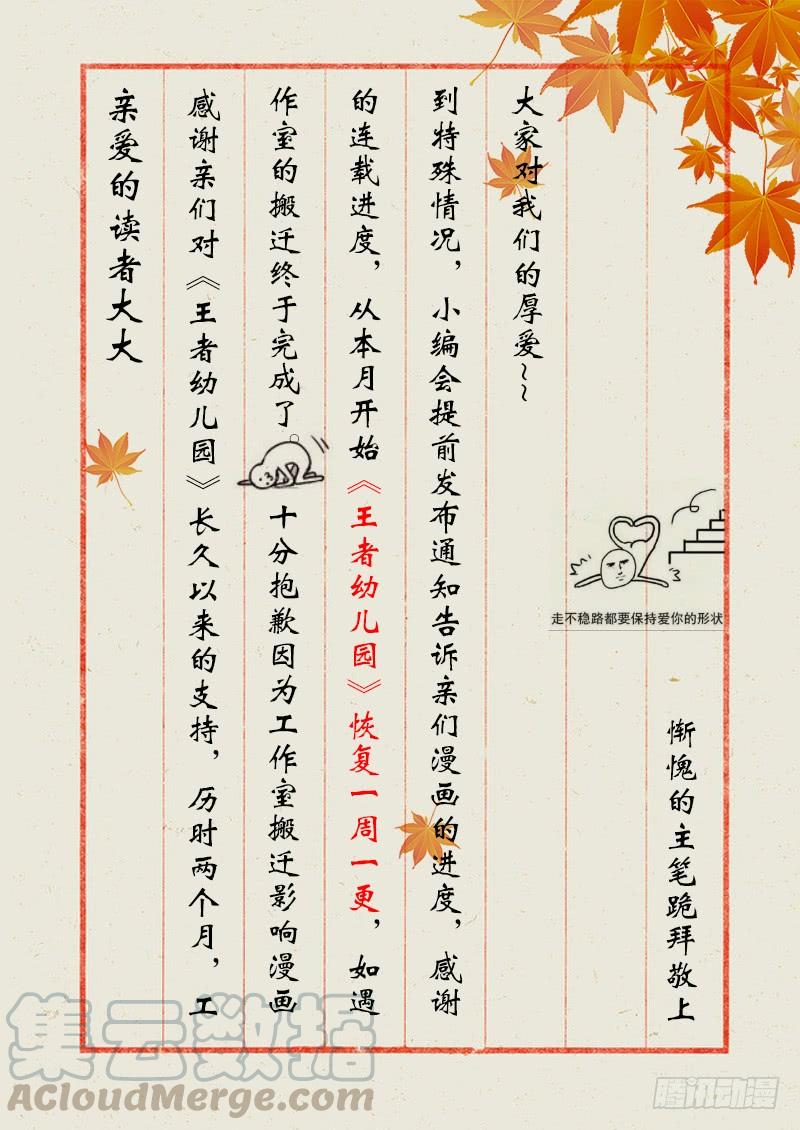 亲爱的读者大大
感谢亲们对《王者幼儿园》长久以来的支持，历时两个月，工
作室的搬迁终于完成了。十分抱歉因为工作室搬迁影响漫画
的连载进度，从本月开始《王者幼儿园》恢复一周一更，如遇
到特殊情况，小编会提前发布通知告诉亲们漫画的进度，感谢
大家对我们的厚爱~~
走不稳路都要保持爱你的形状
惭愧的主笔跪拜敬上
集云数据
ACloudMerge.com
腾讯动漫